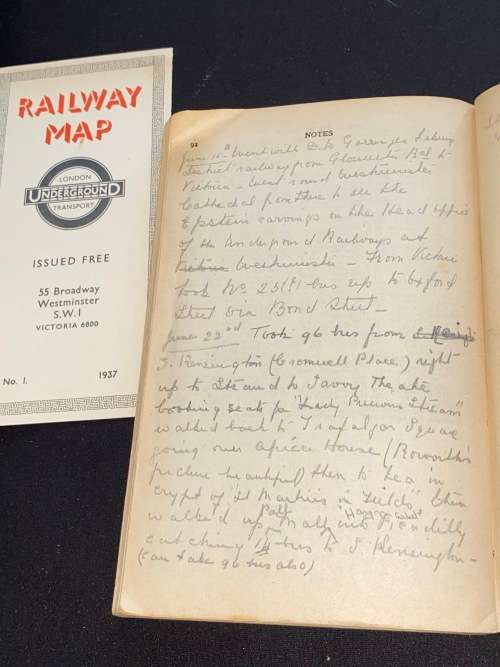 RAILWAY
MAP
LONDON
UNDERGROUND
TRANSPORT
ISSUED FREE
55 Broadway
Westminster
S.W.1
VICTORIA 6800
No. 1.
1937
92
NOTES
June 16th Went with to Library
District railway from Gloucester Rd to
Victoria - Went round Westminster
Cathedral from there to see the
Epstein carvings on the Head office
of the Underground Railways at
Victoria Westminster - From Victoria
took No 25(?) bus up to Oxford
Street via Bond Street -
June 22nd Took 96 bus from S. Kensing
S. Kensington (Cromwell Place) right
up to Strand to Savoy Theatre
booking seats for "Lady Precious Stream"
walked back to Trafalgar Square
going over Africa House (
picture beautiful) then to tea in
crypt of "St Martins in Fields" then
walked up Pall Mall into Haymarket Piccadilly
catching 14 bus to S. Kensington -
(can take 96 bus also)